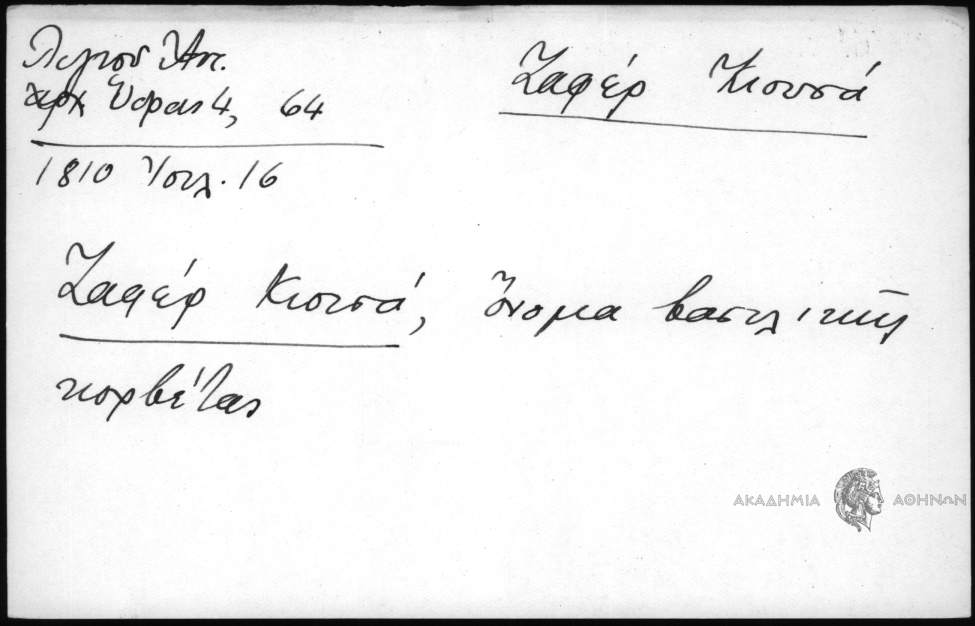 Λιγνοῦ Ἀντ.
Ἀρχ Ὕδρας 4, 64
1810 Ἰουλ. 16
Ζαφέρ Κιουσά
Ζαφέρ Κιουσά, ὄνομα βασιλικῆς
κορβέτας
ΑΚΑΔΗΜΙΑ ΑΘΗΝΩΝ